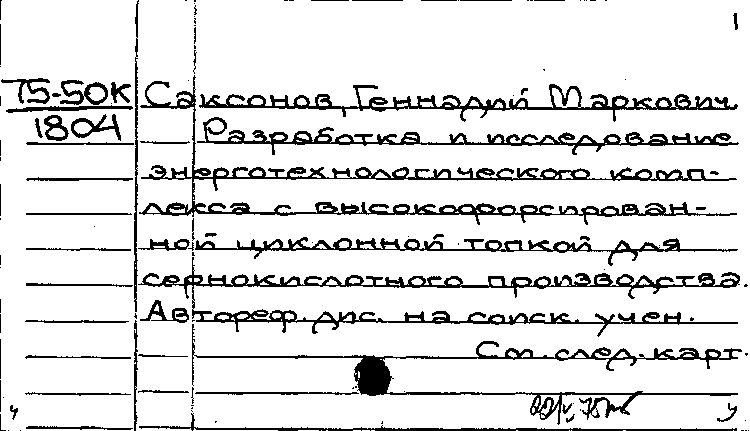 1
75-50К
1804
Саксонов, Геннадий Маркович.
Разработка и исследование
энерготехнологического комп-
лекса с высокофорсирован-
ной циклонной топкой для
сернокислотного производства.
Автореф. дис. на соиск. учен.
См. след. карт.
у
у